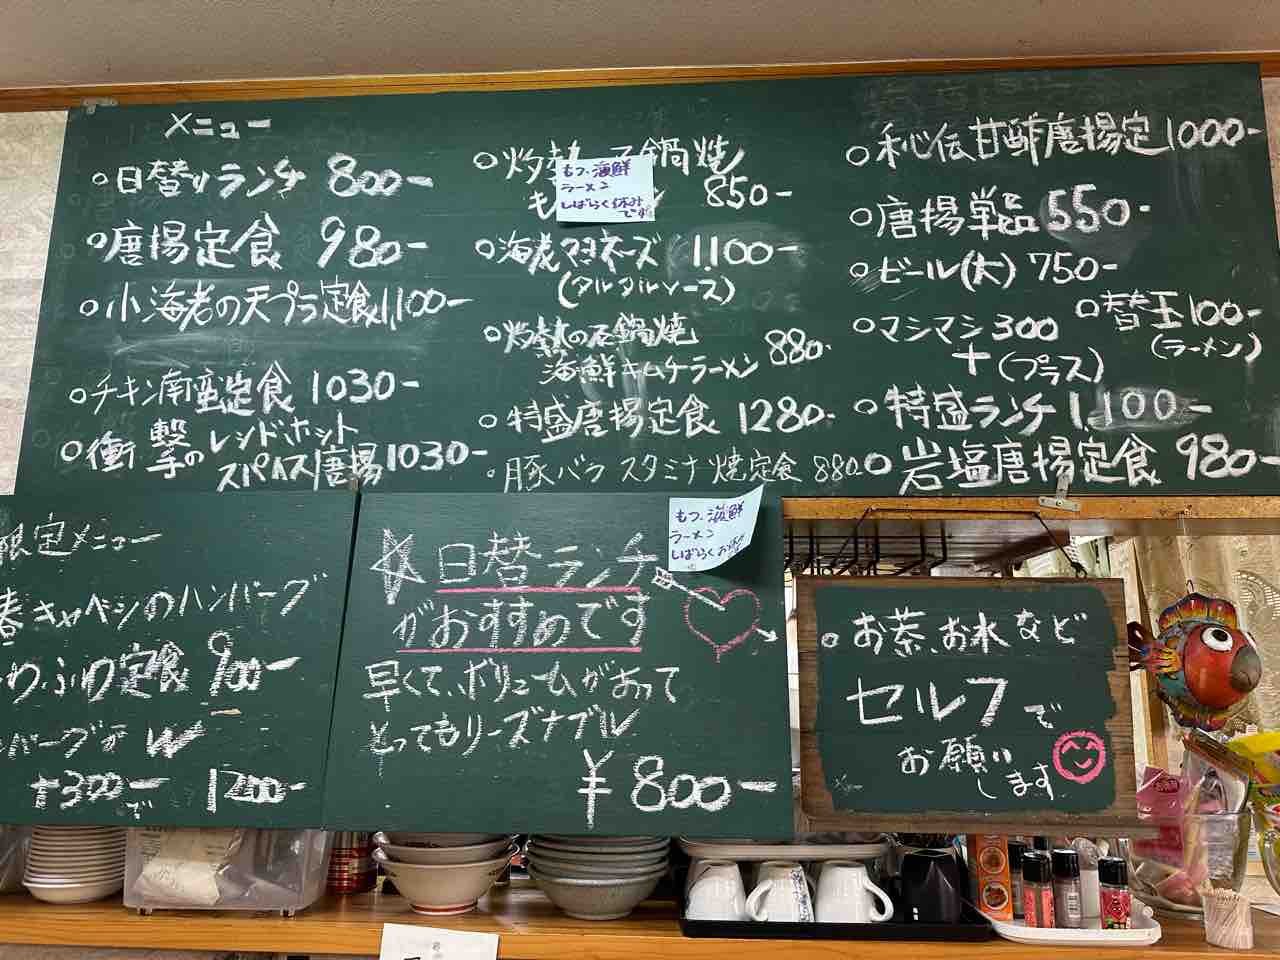 メニュー
○日替りランチ 800-
○唐揚定食 980-
○小海老の天プラ定食 1,100-
○チキン南蛮定食 1030-
○衝撃のレッドホット
スパイス唐揚 1030-
○灼熱 石鍋焼
も ン 850-
もつ、海鮮
ラーメン
しばらく休み
です
○海老マヨネーズ 1,100-
(タルタルソース)
○灼熱の石鍋焼
海鮮キムチラーメン 880-
○特盛唐揚定食 1280-
○豚バラスタミナ焼定食 880-
○秘伝甘酢唐揚定 1000-
○唐揚単品 550-
○ビール(大) 750-
○マシマシ 300
+(プラス)
○替玉 100-
(ラーメン)
○特盛ランチ 1,100-
○岩塩唐揚定食 980-
限定メニュー
春キャベツのハンバーグ
わふわ定食 900-
バーグ W
+300-で 1200-
☆日替ランチ
がおすすめです
早くて、ボリュームがあって
とってもリーズナブル
¥800-
もつ、海鮮
ラーメン
しばらくお休み
○お茶、お水など
セルフで
お願い
します